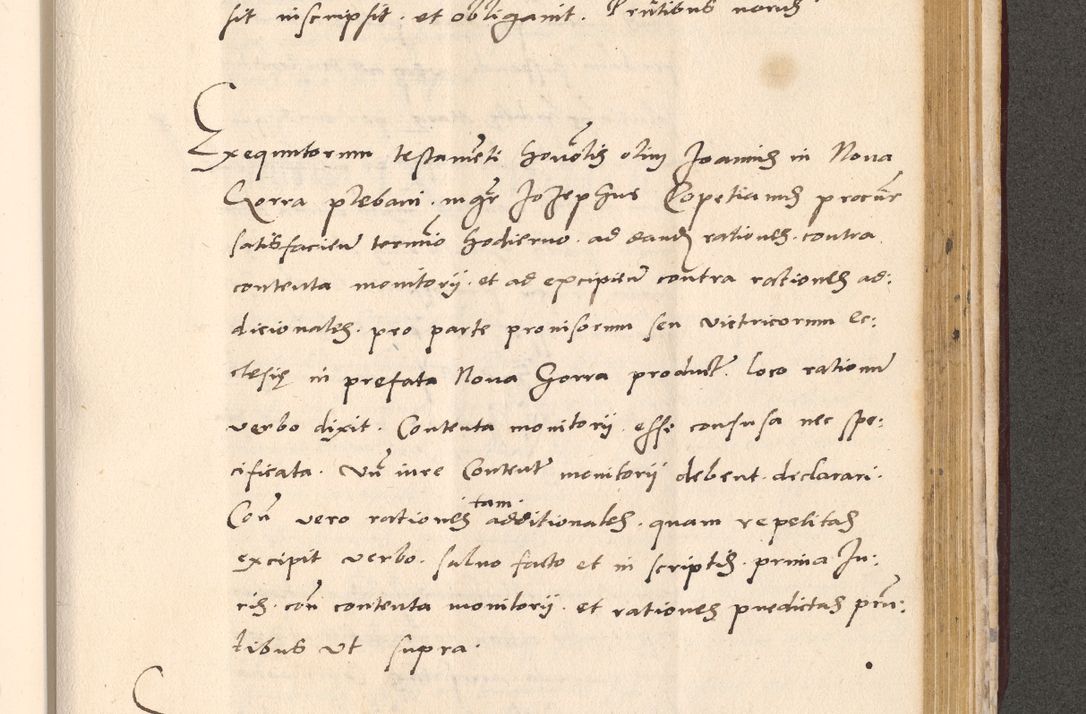 sit inscripsit. et obliganit. Pntibus
Exequutorum testamēti honētis olim Joannis in Nova
Gorra plebani. mgr Jozephus Copetianus procur
satisfaciens termīo hodierno. ad dandas rationes. contra
contenta monitorij. et ad excipiend contra rationes ad:
dicionales. pro parte provisorum seu vietricorum ec:
clesię in prefata Nova Gorra product. loco rationum
verbo dixit. Contenta monitorij. esse confusa nec spe:
cificata. Un iure Content monitorij debent. declarari.
Con vero rationes tam additionales. quam repetitas
excipit verbo. salvo facto et in scriptis. prima Ju:
ris. con contenta monitorij. et rationes predictas prn:
tibus ut supra.